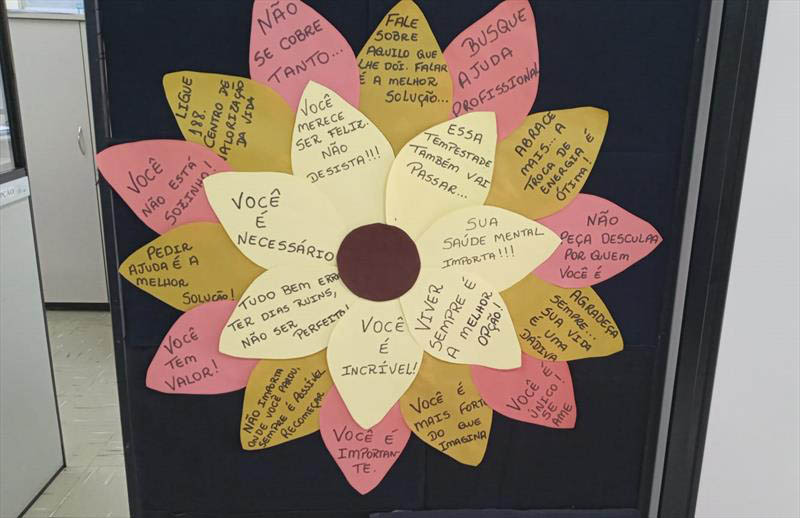 NÃO
SE COBRE
TANTO...
FALE
SOBRE
AQUILO QUE
LHE DOI. FALAR
É A MELHOR
SOLUÇÃO...
BUSQUE
AJUDA
PROFISSIONAL
ABRACE
MAIS... A
TROCA DE
ENERGIA É
ÓTIMA!
NÃO
PEÇA DESCULPA
POR QUEM
VOCÊ É
AGRADEÇA
SEMPRE...
SUA VIDA
É UMA
DÁDIVA
VOCÊ É
ÚNICO!
SE
AME
VOCÊ É
MAIS FORTE
DO QUE
IMAGINA
VOCÊ É
IMPORTAN-
TE.
NÃO IMPORTA
ONDE VOCÊ PAROU,
SEMPRE É POSSÍVEL
RECOMEÇAR
VOCÊ
TEM
VALOR!
PEDIR
AJUDA É A
MELHOR
SOLUÇÃO!
VOCÊ
NÃO ESTÁ
SOZINHA!
LIGUE
188.
CENTRO DE
VALORIZAÇÃO
DA VIDA
VOCÊ
MERECE
SER FELIZ.
NÃO
DESISTA!!!
ESSA
TEMPESTADE
TAMBÉM VAI
PASSAR...
SUA
SAÚDE MENTAL
IMPORTA!!!
VIVER
SEMPRE É
A MELHOR
OPÇÃO!
VOCÊ
É
INCRÍVEL!
TUDO BEM ERRAR,
TER DIAS RUINS,
NÃO SER
PERFEITA!
VOCÊ
É
NECESSÁRIO